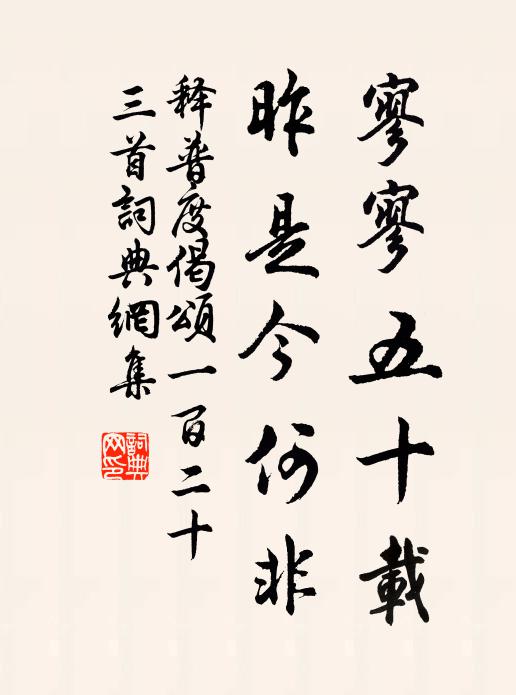 寥寥五十載
昨是今何非
释普度偈頌一百二十
三首詞典網集
詞典網印